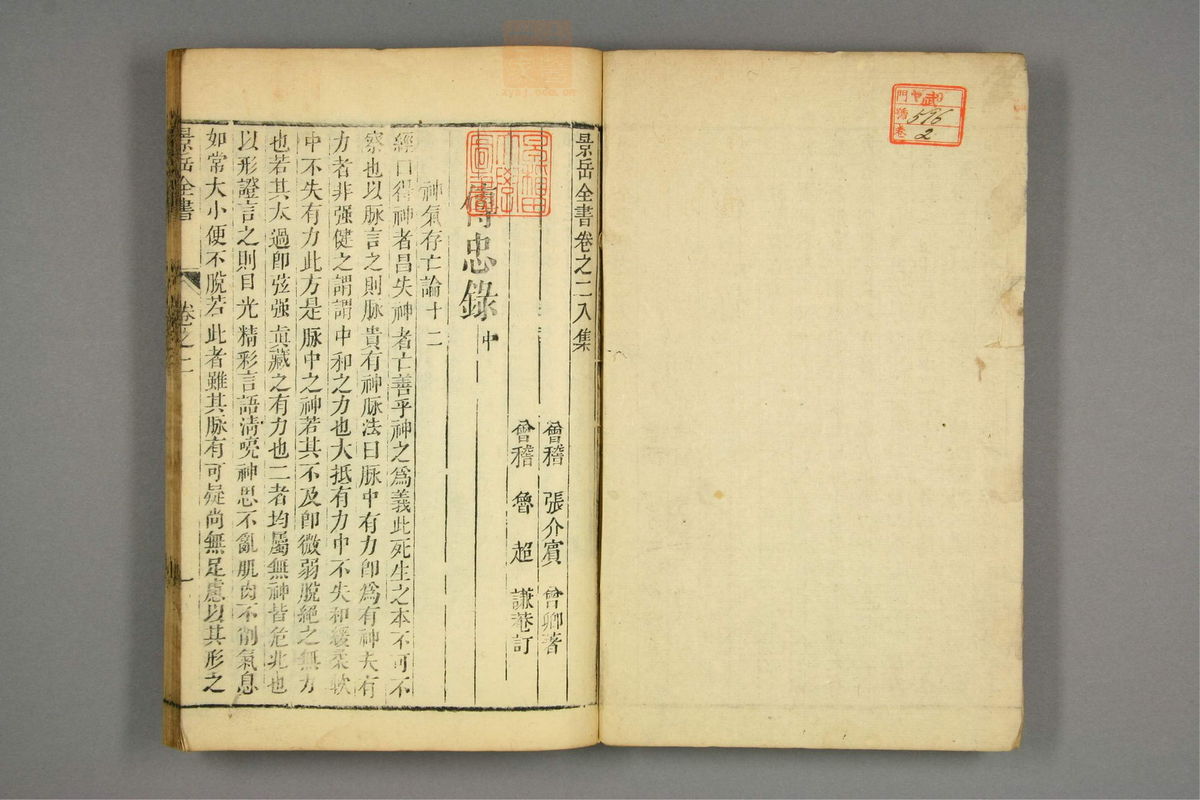 景岳全書卷之二入集
會稽 張介賓 會卿著
會稽 魯超 謙菴訂
傳忠錄 中
神氣存亡論十二
經曰得神者昌失神者亡善乎神之爲義此死生之本不可不
察也以脉言之則脉貴有神脉法曰脉中有力卽爲有神夫有
力者非强健之謂謂中和之力也大抵有力中不失和緩柔軟
中不失有力此方是脉中之神若其不及卽微弱脫絕之無力
也若其太過卽弦强眞藏之有力也二者均屬無神皆危兆也
以形證言之則目光精彩言語淸亮神思不亂肌肉不削氣息
如常大小便不脫若此者雖其脉有可疑尚無足慮以其形之
景岳全書
卷之二
一
596
2